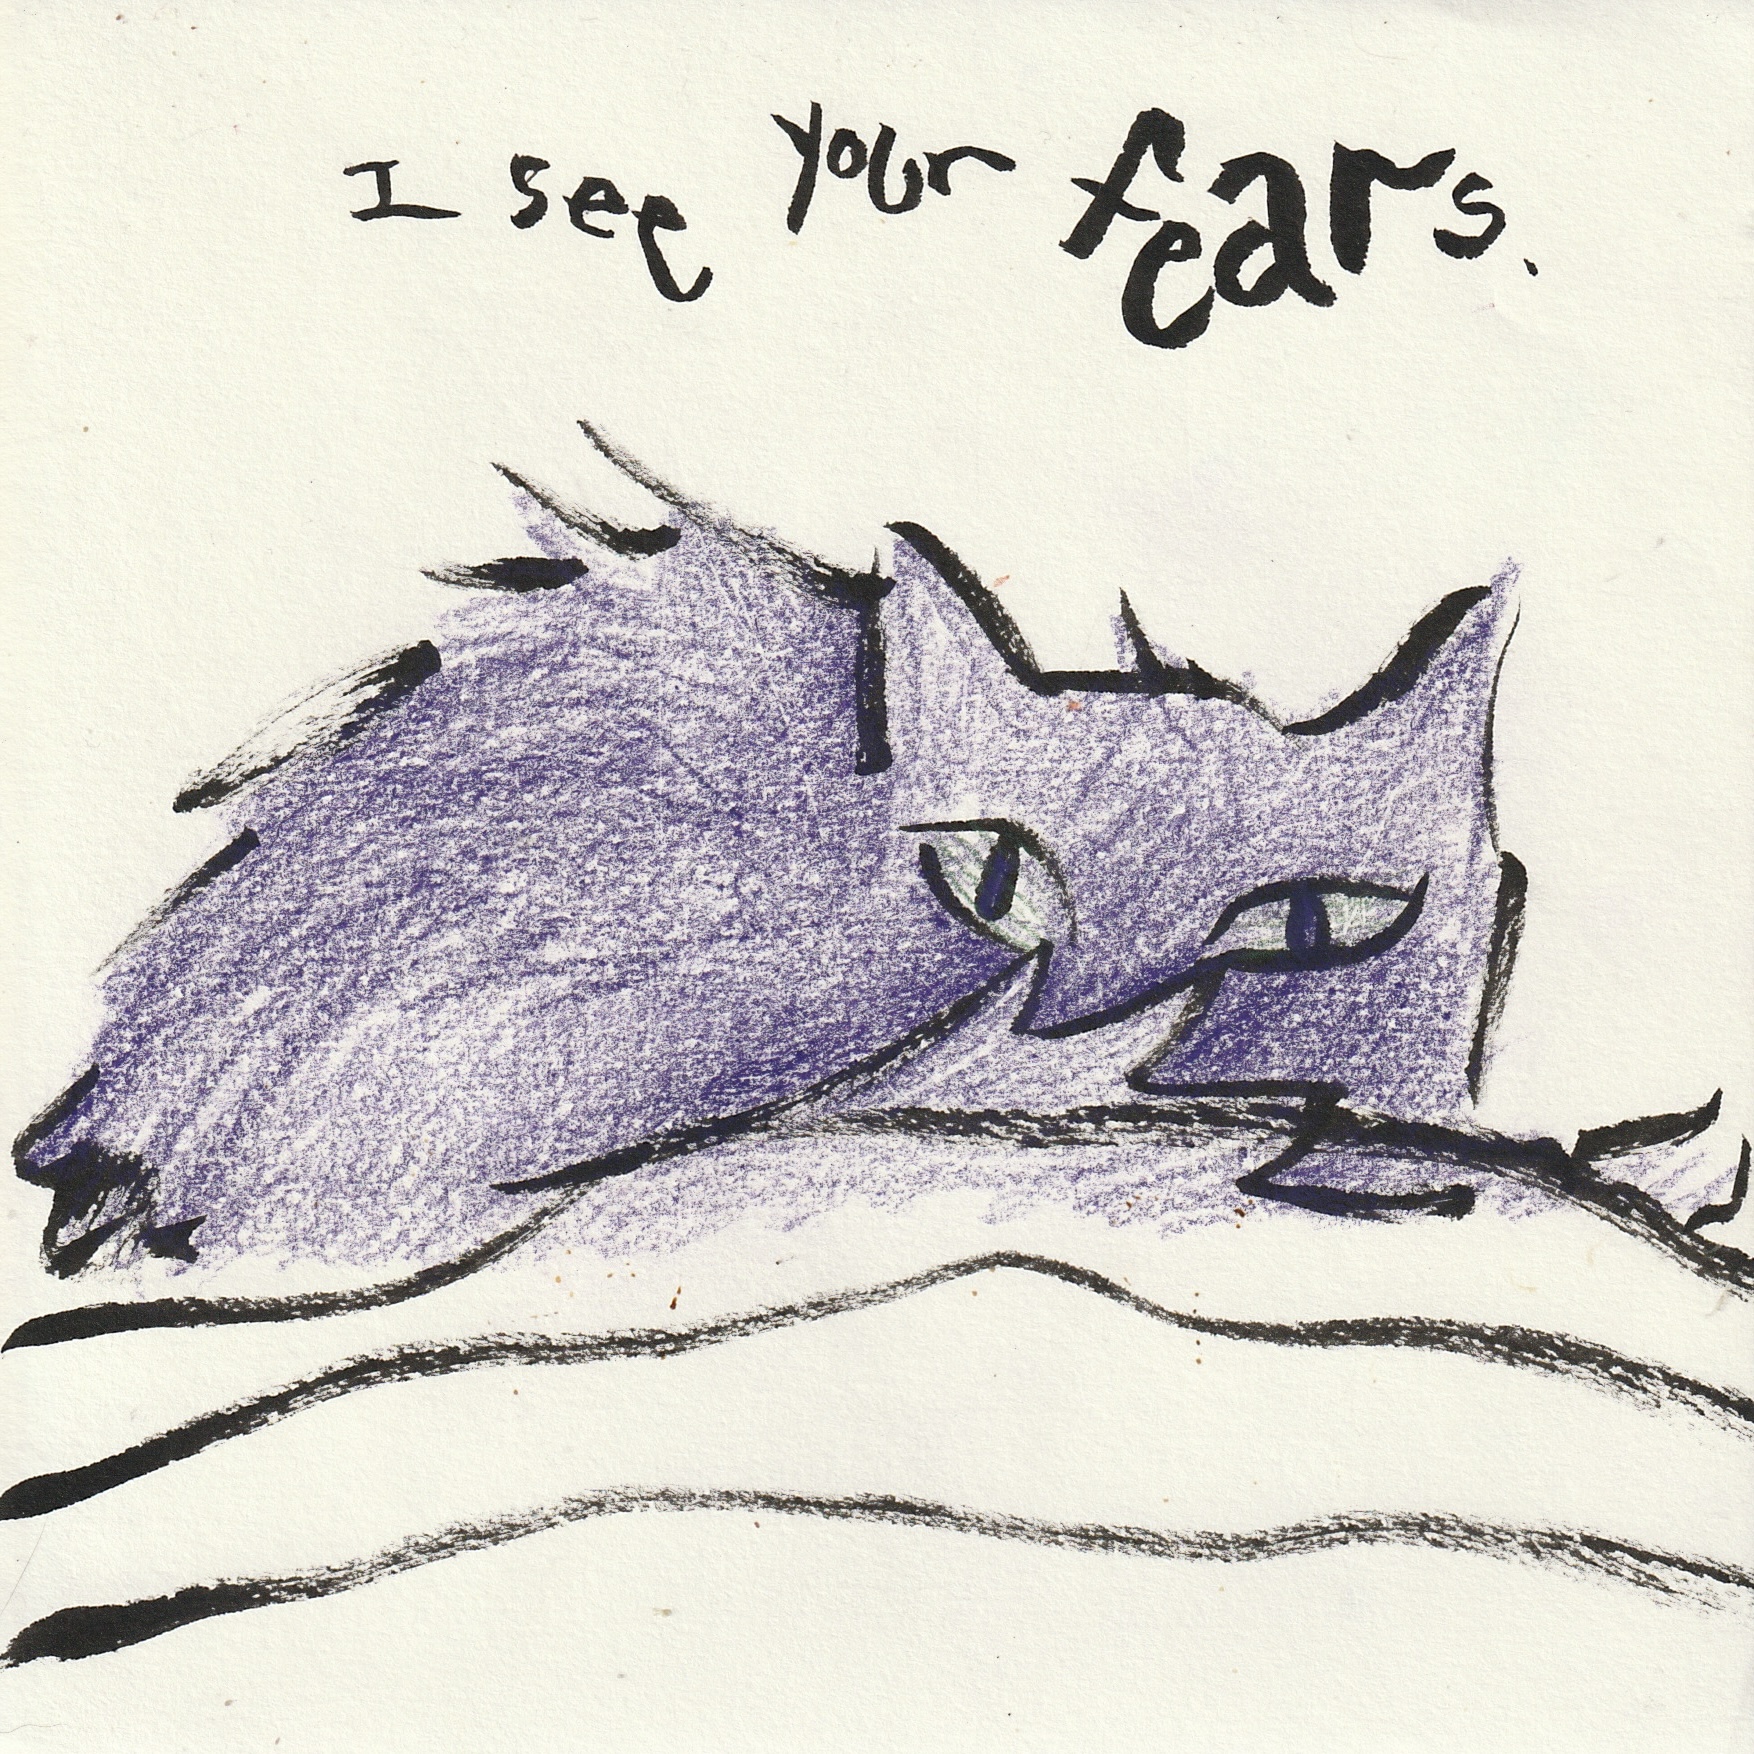 I see your fears.